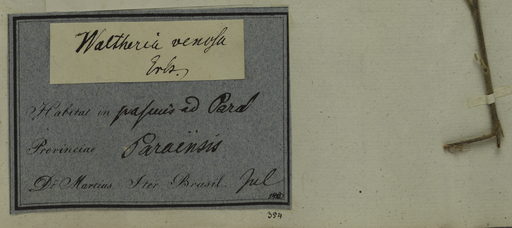 Waltheria venosa
Habitat in pascuis ad Para
Provinciae Paraënsis
Dr. Martius Iter Brasil. Jul
354